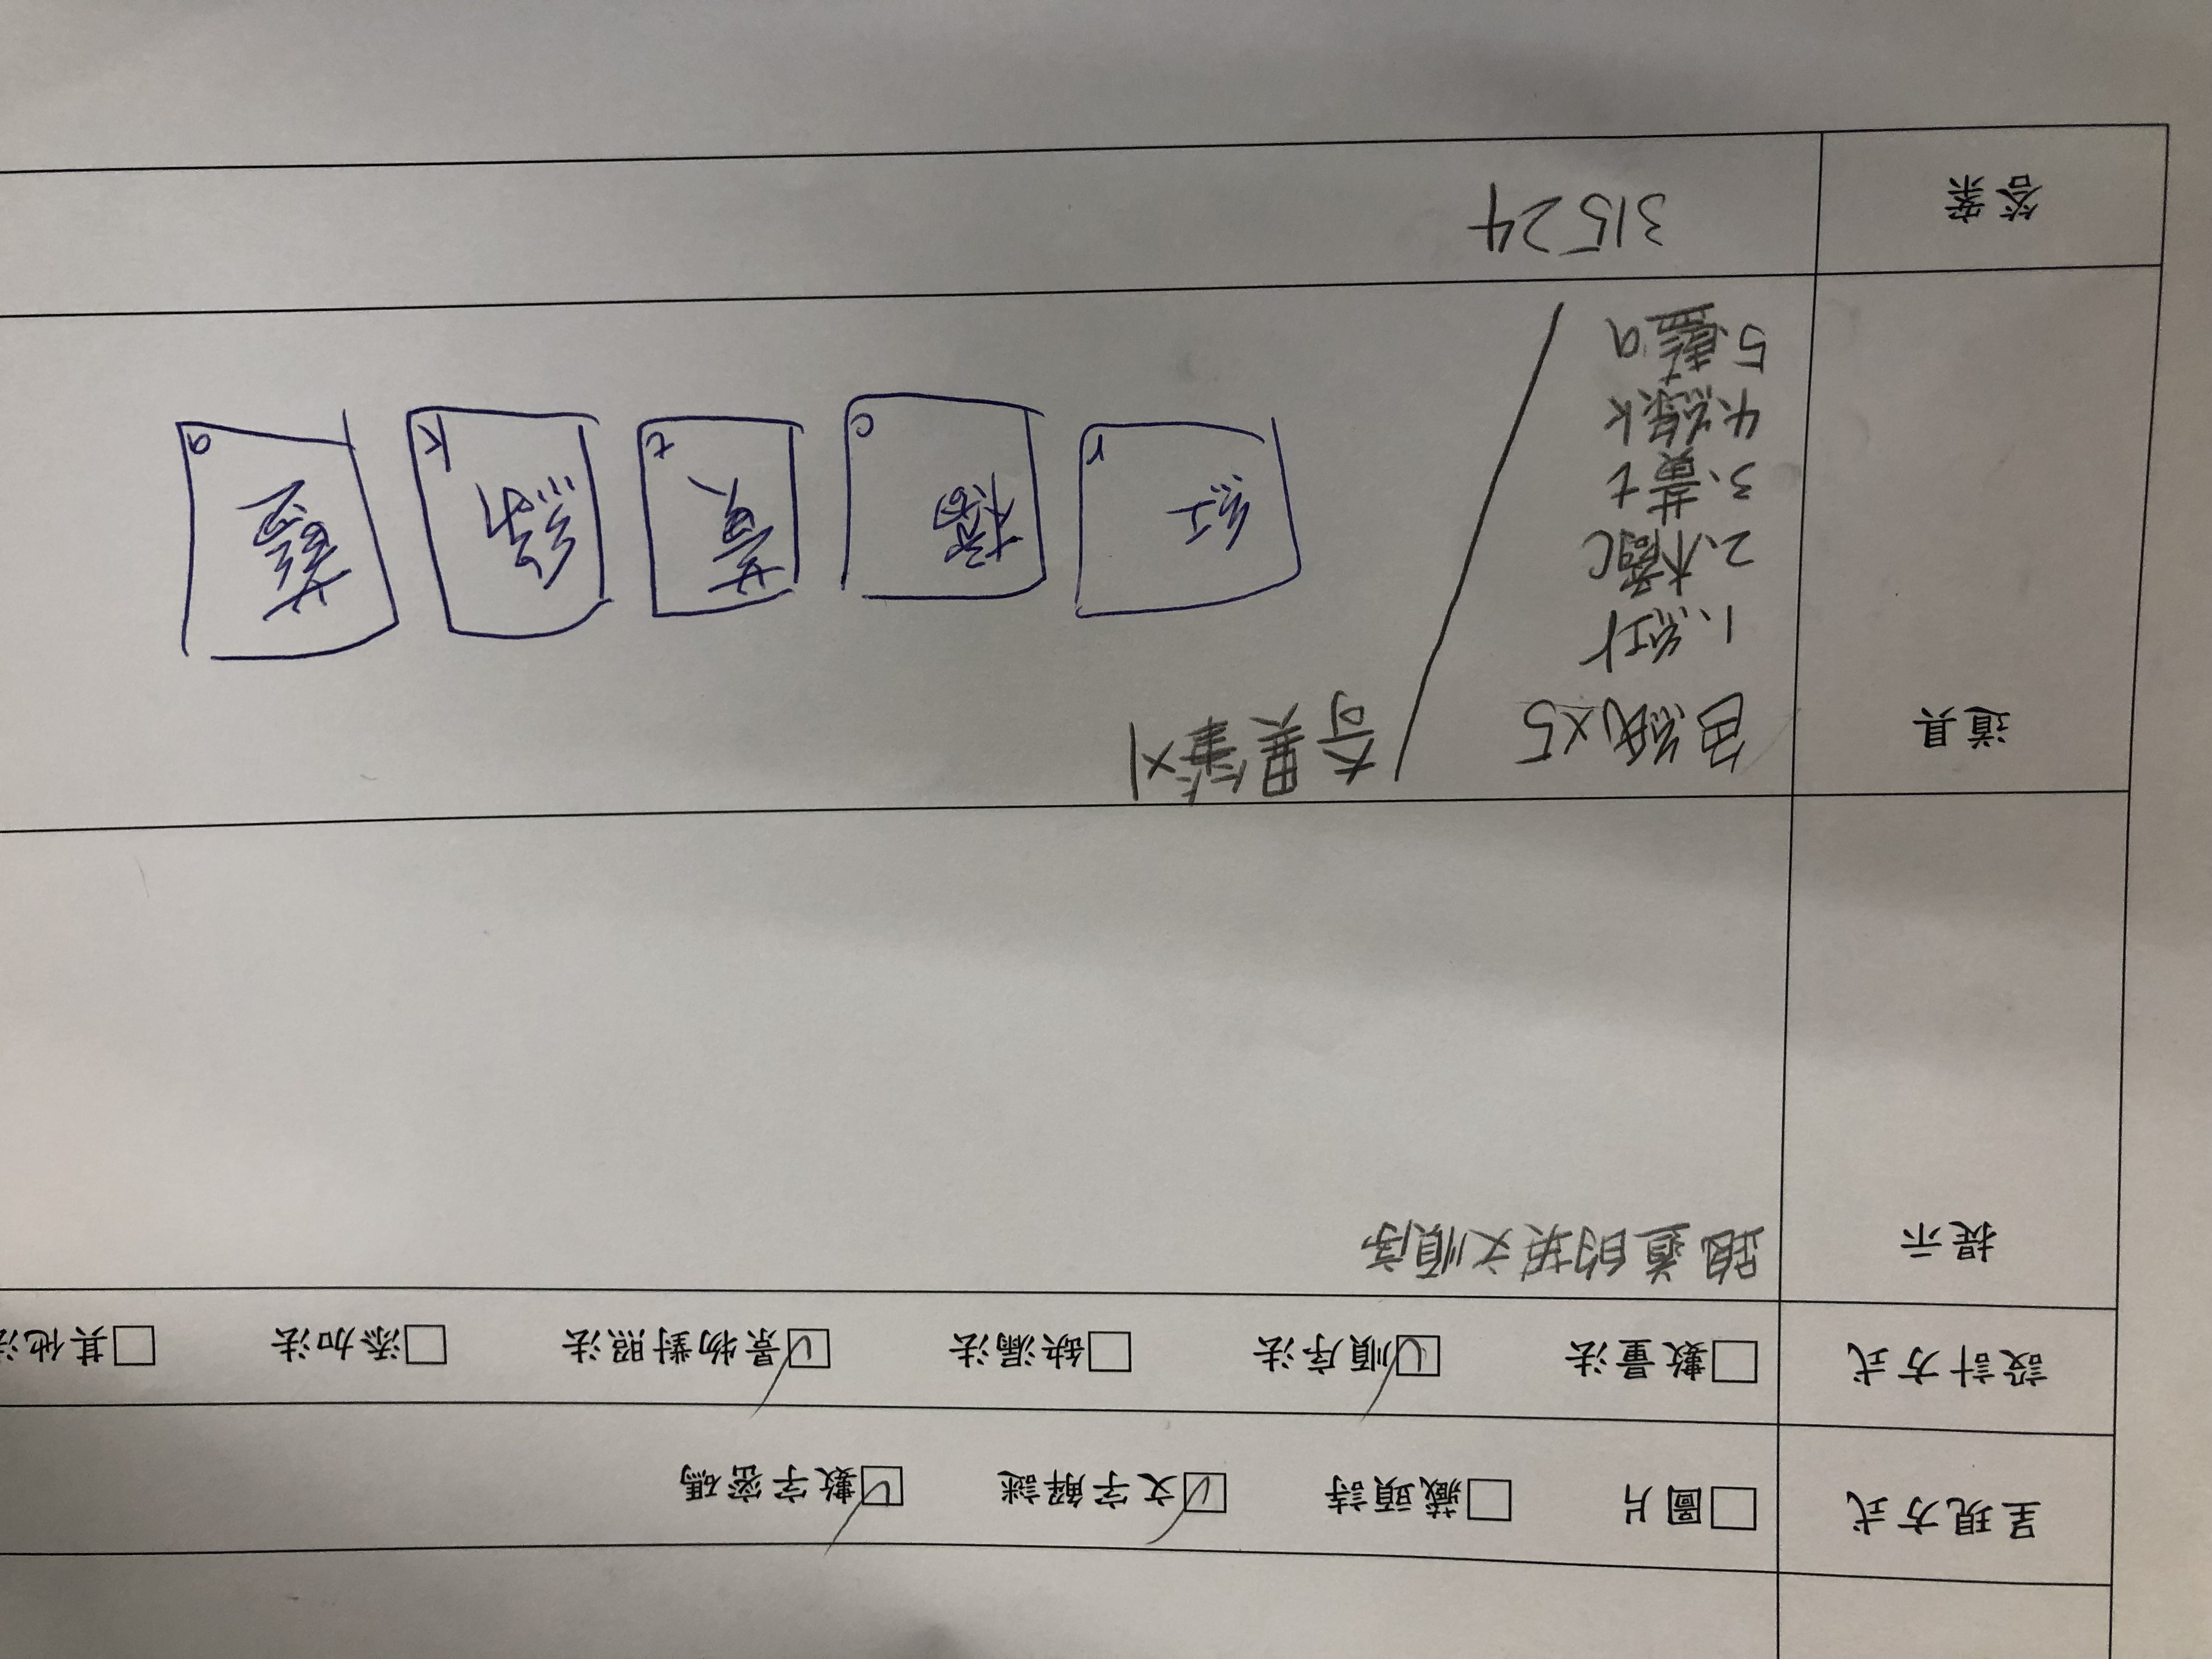 呈現方式 □圖片 □藏頭詩 ☑文字解謎 ☑數字密碼
設計方式 □數量法 ☑順序法 □缺漏法 ☑景物對照法 □添加法 □其他法
提示 跑道的英文順序
道具 色紙x5 / 奇異筆x1
1、紅r
2、橘c
3、黃t
4、綠k
5、藍a
紅 r 橘 c 黃 t 綠 k 藍 a
答案 31524